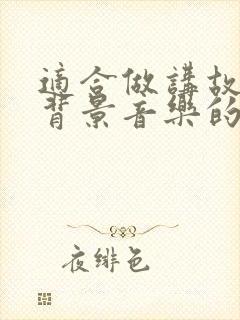 適合做講故
背景音樂的
夜緋色